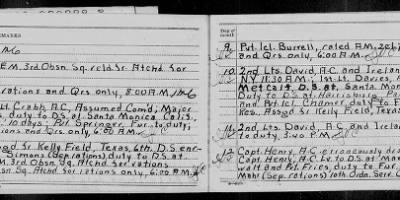 REMARKS
E.M. 3rd Obsn. Sq. reld Sr. Atchd. for
rations and Qrs. only, 8:00 A.M.
Lt. Crabb, A.C. Assumed Com'd; Major
duty to D.S. at Santa Monica Calif.
10 days; Pvt. Springer, Fur. to duty,
rations and Qrs. only 6:00 A.M.
Asgd Sr. Kelly Field, Texas, 6th. D.S. enr-
Simons (Sep. rations) duty to D.S. at
3rd Obsn. Sq. Atchd. for rations
Obsn. Sq. Atchd. for rations only, 6:00 A.M.
Day of
9 Pvt. 1cl. Burrell, rated A.M. 2cl.
and Qrs. only, 6:00 A.M.
10 2nd Lts. David, A.C. and Irelan
NY 11:30 A.M.; 1st. Lt. Davies,
Metcalf D.S. at Santa Mon
Duty to D.S. at Harrisburg, Pa.
and Pvt. 1cl. Chamer, duty to F
Res. Assgd Sr. Kelly Field, Texas
11 2nd Lts. David, A.C. and Ireland
to duty, 3:00 P.M.
12 Capt. Henry, A.C. erroneously dro
Capt. Henry, A.C. Lv. to D.S. at Max
walt and Pvt. Fries, duty to Fur
Mohr (Sep. rations) 10th Ordn. Serv. C